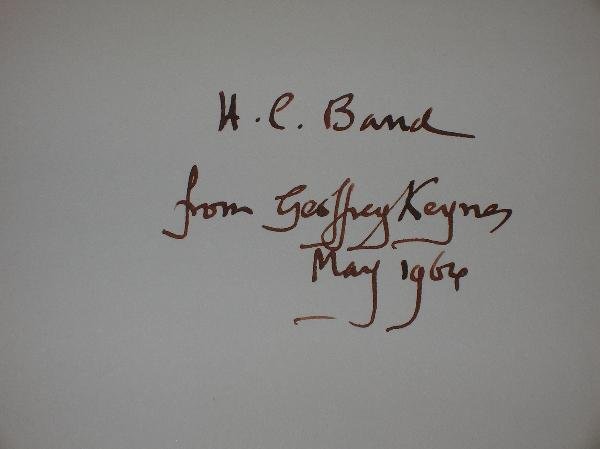 H. C. Band
from Geoffrey Keynes
May 1964